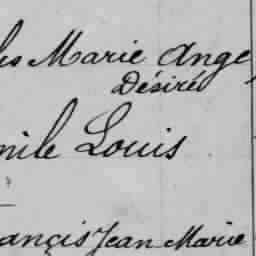 les Marie Ange
Désiré
mile Louis
ançis Jean Marie